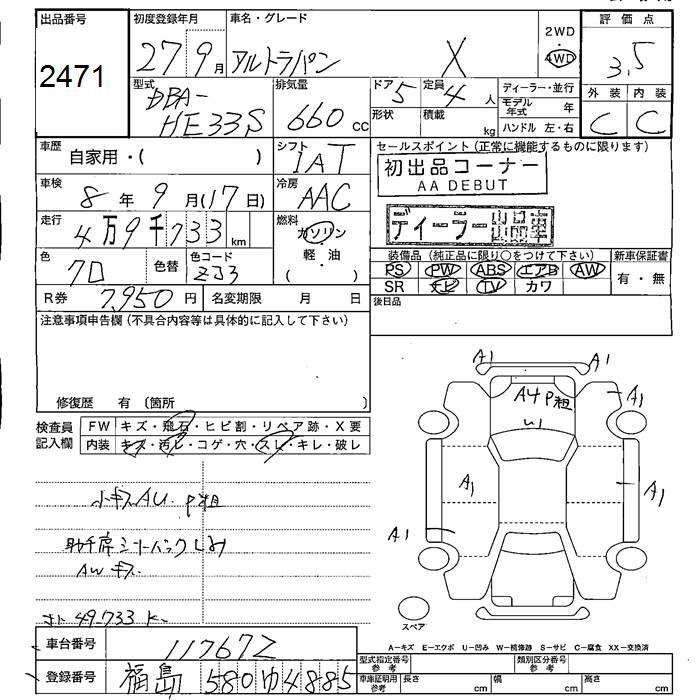 出品番号 初度登録年月 車名・グレード 2WD 4WD 評価点
2471 27 9月 アルトラパン X 3.5
型式 排気量 ドア 定員 ディーラー・並行 外装 内装
DBA- 5 4人 モデル年式 年
HE33S 660cc 形状 積載 kg ハンドル 左・右 C C
車歴 自家用・( ) シフト IAT セールスポイント(正常に機能するものに限ります)
初出品コーナー
AA DEBUT
車検 8年 9月(17日) 冷房 AAC
走行 4万9千733km 燃料 ガソリン
軽・油
( )
ディーラー
色 色替 色コード ZJ3 装備品(純正品に限り○をつけて下さい) 新車保証書
PS PW ABS エアB AW 有・無
SR ナビ TV カワ
R券 7,950円 名変期限 月 日 後日品
注意事項申告欄(不具合内容等は具体的に記入して下さい)
修復歴 有 〔箇所 〕
検査員記入欄 FW キズ・飛石・ヒビ割・リペア跡・X要
内装 キズ・汚レ・コゲ・穴・スレ・キレ・破レ
小キズAU P粗
助手席シートバックしみ
AWキズ
49,733 K
A1 A1
A4 P粗 A1
U1
A1 A1
A1
スペア
A-キズ E-エクボ U-凹み W-補修跡 S-サビ C-腐食 XX-交換済
車台番号 117672 型式指定番号 参考 類別区分番号 参考
登録番号 福島 580 ゆ 4885 車庫証明用 参考 長さ cm 幅 cm 高さ cm